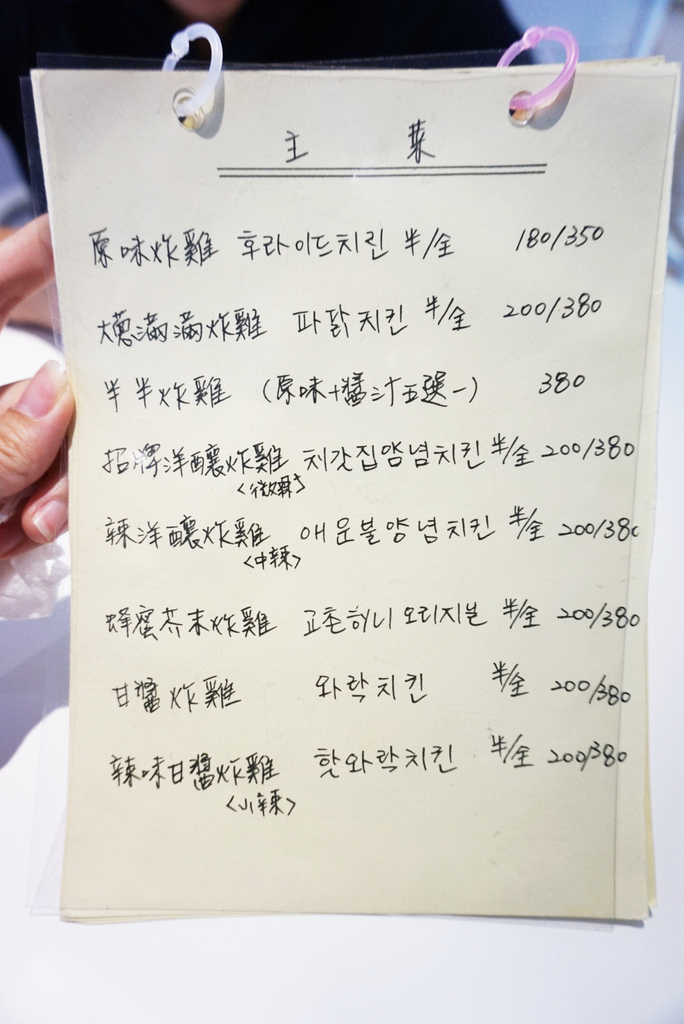 主 菜
原味炸雞 후라이드치킨 半/全 180/350
大蔥滿滿炸雞 파닭치킨 半/全 200/380
半半炸雞 (原味+醬汁五選一) 380
招牌洋釀炸雞 치킨집양념치킨 半/全 200/380
<微辣>
辣洋釀炸雞 매운불양념치킨 半/全 200/380
<中辣>
蜂蜜芥末炸雞 교촌허니오리지널 半/全 200/380
甘醬炸雞 와락치킨 半/全 200/380
辣味甘醬炸雞 핫와락치킨 半/全 200/380
<小辣>